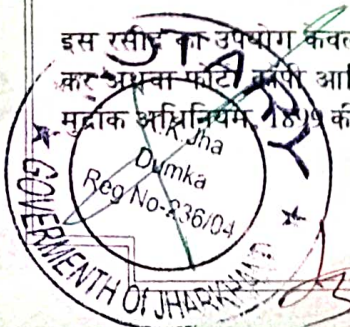 इस रसीद का उपयोग केवल
कर अथवा फोटो कॉपी आि
मुद्रांक अधिनियम, 1899 की
NOTARY
K. Jha
Dumka
Reg No-236/04
GOVERMENTH Of JHARKHAND